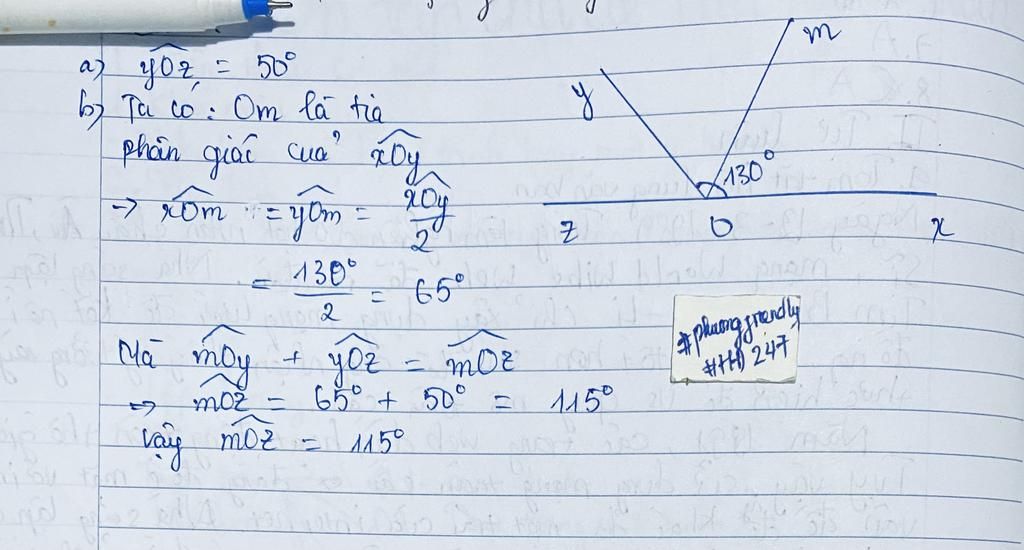 a) yOz = 50°
b) Ta có : Om là tia
phân giác của xOy
→ xOm = yOm = xOy/2
= 130°/2 = 65°
Mà mOy + yOz = mOz
→ mOz = 65° + 50° = 115°
Vậy mOz = 115°
m
y
130°
z O x
#phuongfrendly
#HD247